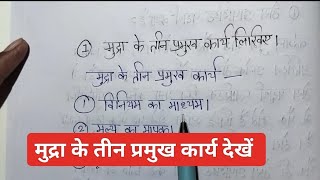 ① मुद्रा के तीन प्रमुख कार्य लिखिए।
मुद्रा के तीन प्रमुख कार्य —
① विनिमय का माध्यम।
② मूल्य का मापक।
मुद्रा के तीन प्रमुख कार्य देखें